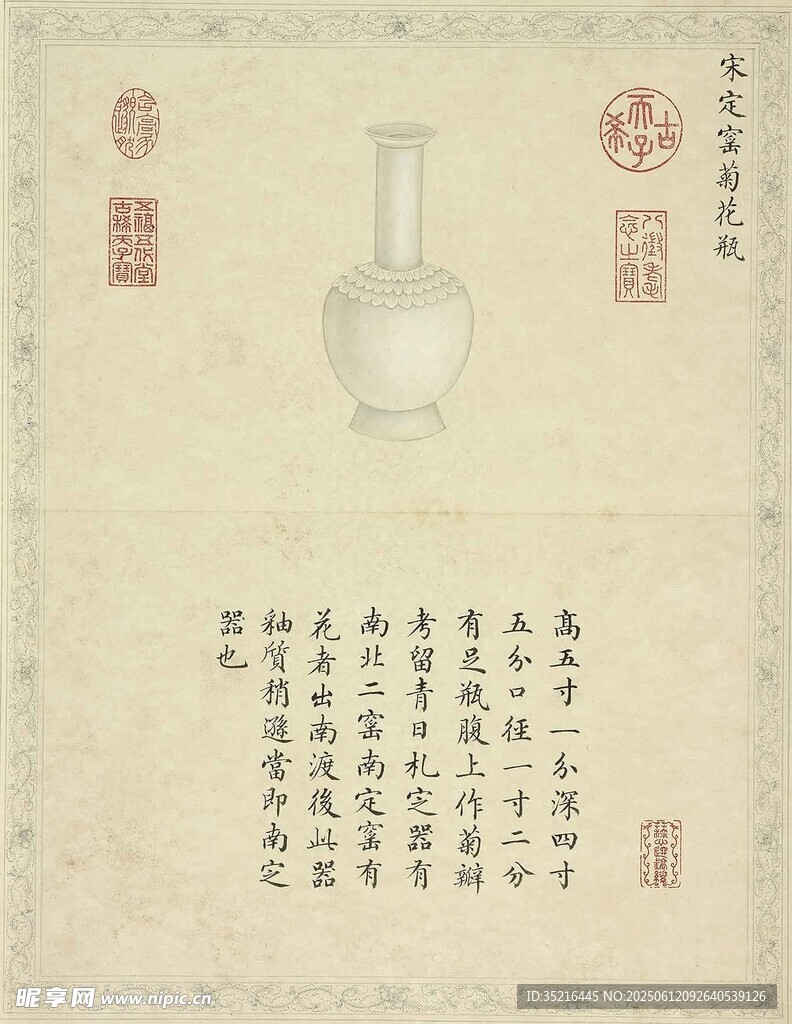 宋定窰菊花瓶
古希天子
八徵耄念之寶
五福五代堂古稀天子寶
高五寸一分深四寸
五分口徑一寸二分
有足瓶腹上作菊瓣
考留青日札定器有
南北二窰南定窰有
花者出南渡後此器
釉質稍遜當即南定
器也
昵享网 www.nipic.cn
ID:35216445 NO:20250612092640539126